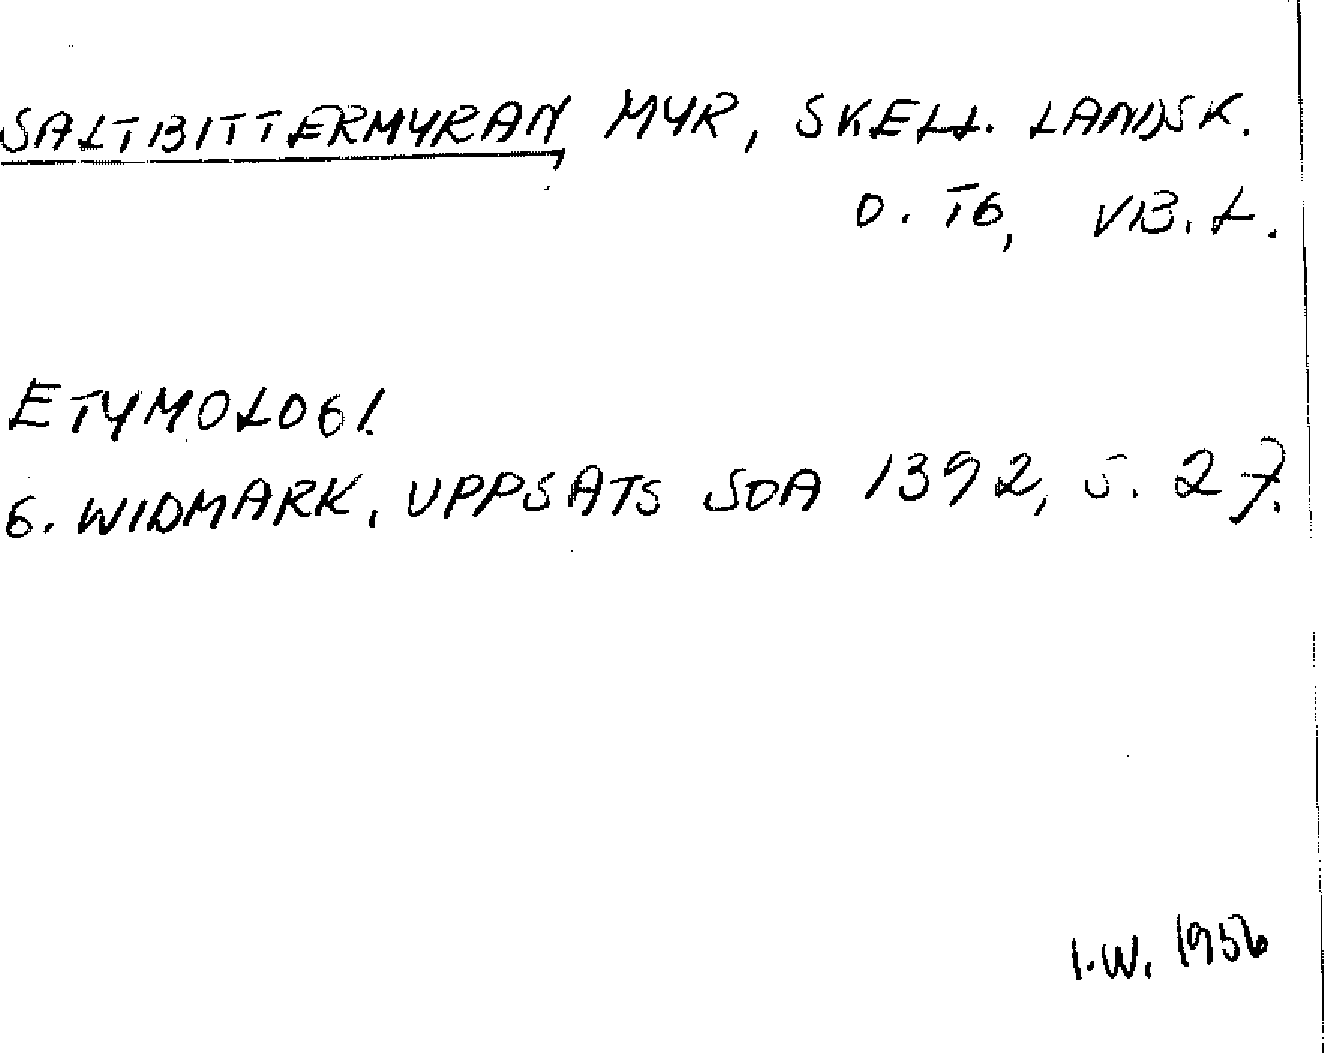 SALTBITTERMYRAN, MYR, SKELL. LANDSK.
O. TG, VB. L.
ETYMOLOGI.
G. WIDMARK, UPPSATS SOA 1392, S. 27.
I.W. 1956